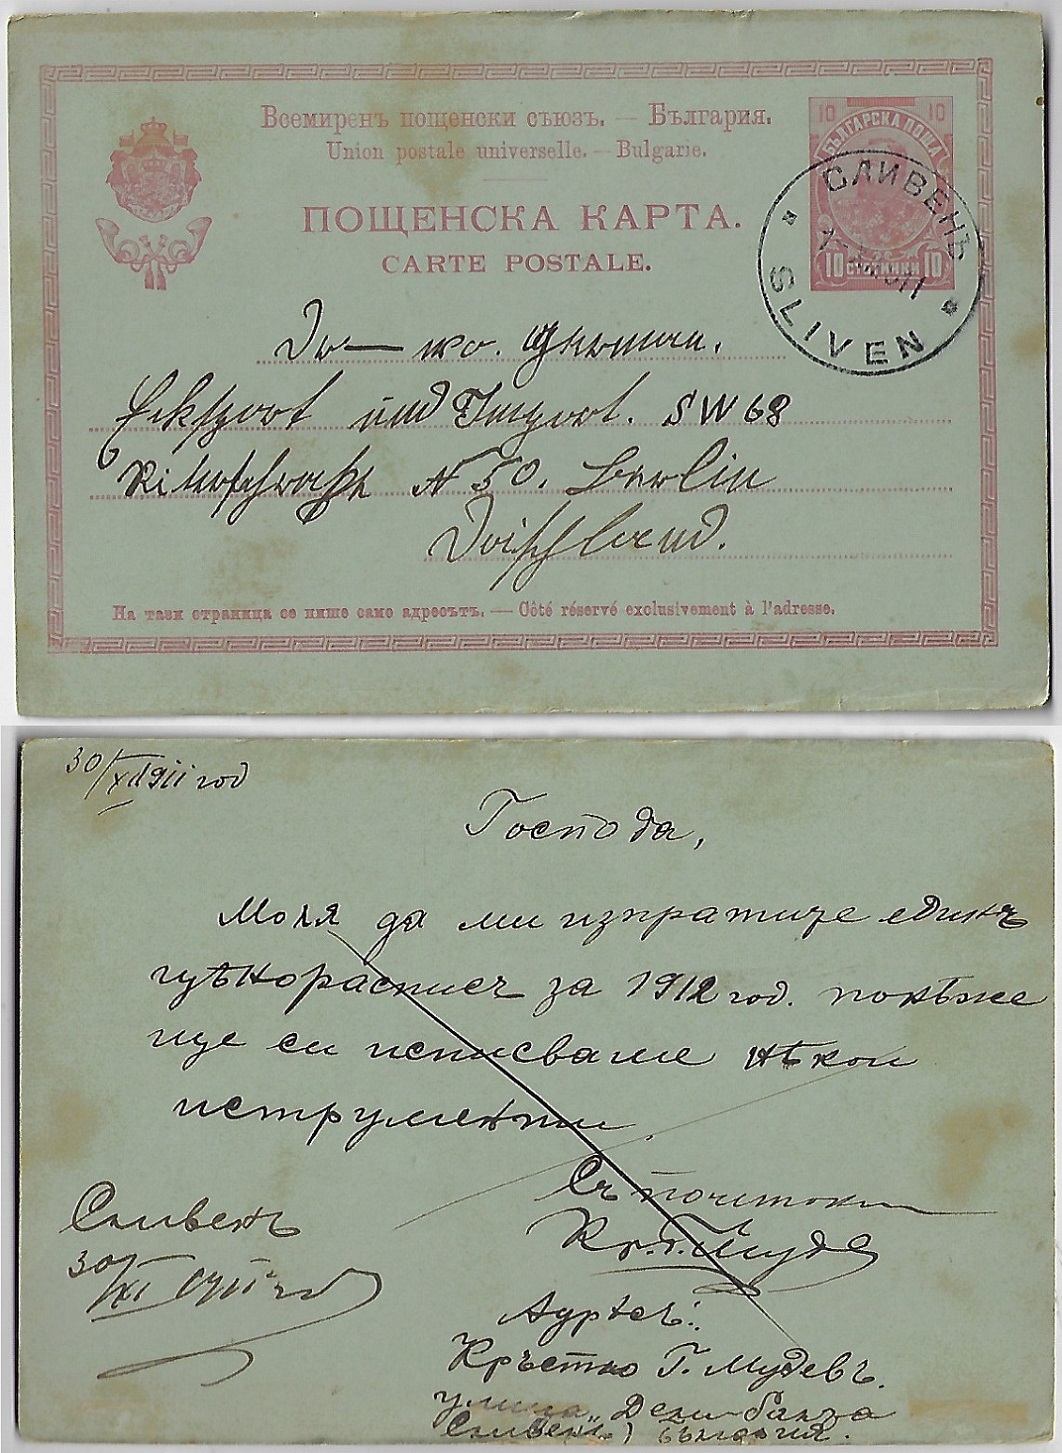 Всемиренъ пощенски съюзъ. — България.
Union postale universelle. — Bulgarie.
ПОЩЕНСКА КАРТА.
CARTE POSTALE.
10 10
БЪЛГАРСКА ПОЩА
10 СТОТИНКИ 10
СЛИВЕНЪ
SLIVEN
Eksport und Import. SW 68
N 50. Berlin
Doischland.
На тази страница се пише само адресътъ. — Côté réservé exclusivement à l'adresse.
30/XI 1911 год
Господа,
Моля да ми изпратите единъ
цѣнорасписъ за 1912 год. понѣже
ще си исписваме нѣкои
иструменти.
Съ почитание
Кр. Г. Мудевъ
Сливенъ
30/XI 1911 год
Адресъ:
Кръстю Г. Мудевъ.
улица
Сливенъ, България.